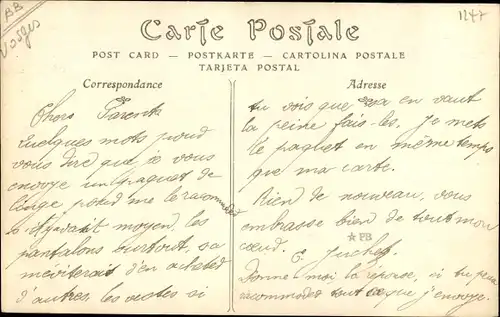 BB
Vosges
1247
Carte Postale
POST CARD — POSTKARTE — CARTOLINA POSTALE
TARJETA POSTAL
Correspondance
Chers Parents
Quelques mots poud
vous dire que je vous
envoye un paquet de
linge poud me le racommoded
s'il y avait moyen, les
pantalons surtout, sa
meviterait d'en acheted
d'autres. les vestes si
Adresse
tu vois que sa en vaut
la peine fais-les. Je mets
le paquet en même temps
que ma carte.
Rien de nouveau, vous
embrasse bien de tout mon
cœud.
PB
E.
Donne moi la réponse, si tu peux
racommoded tout ce que j'envoye.